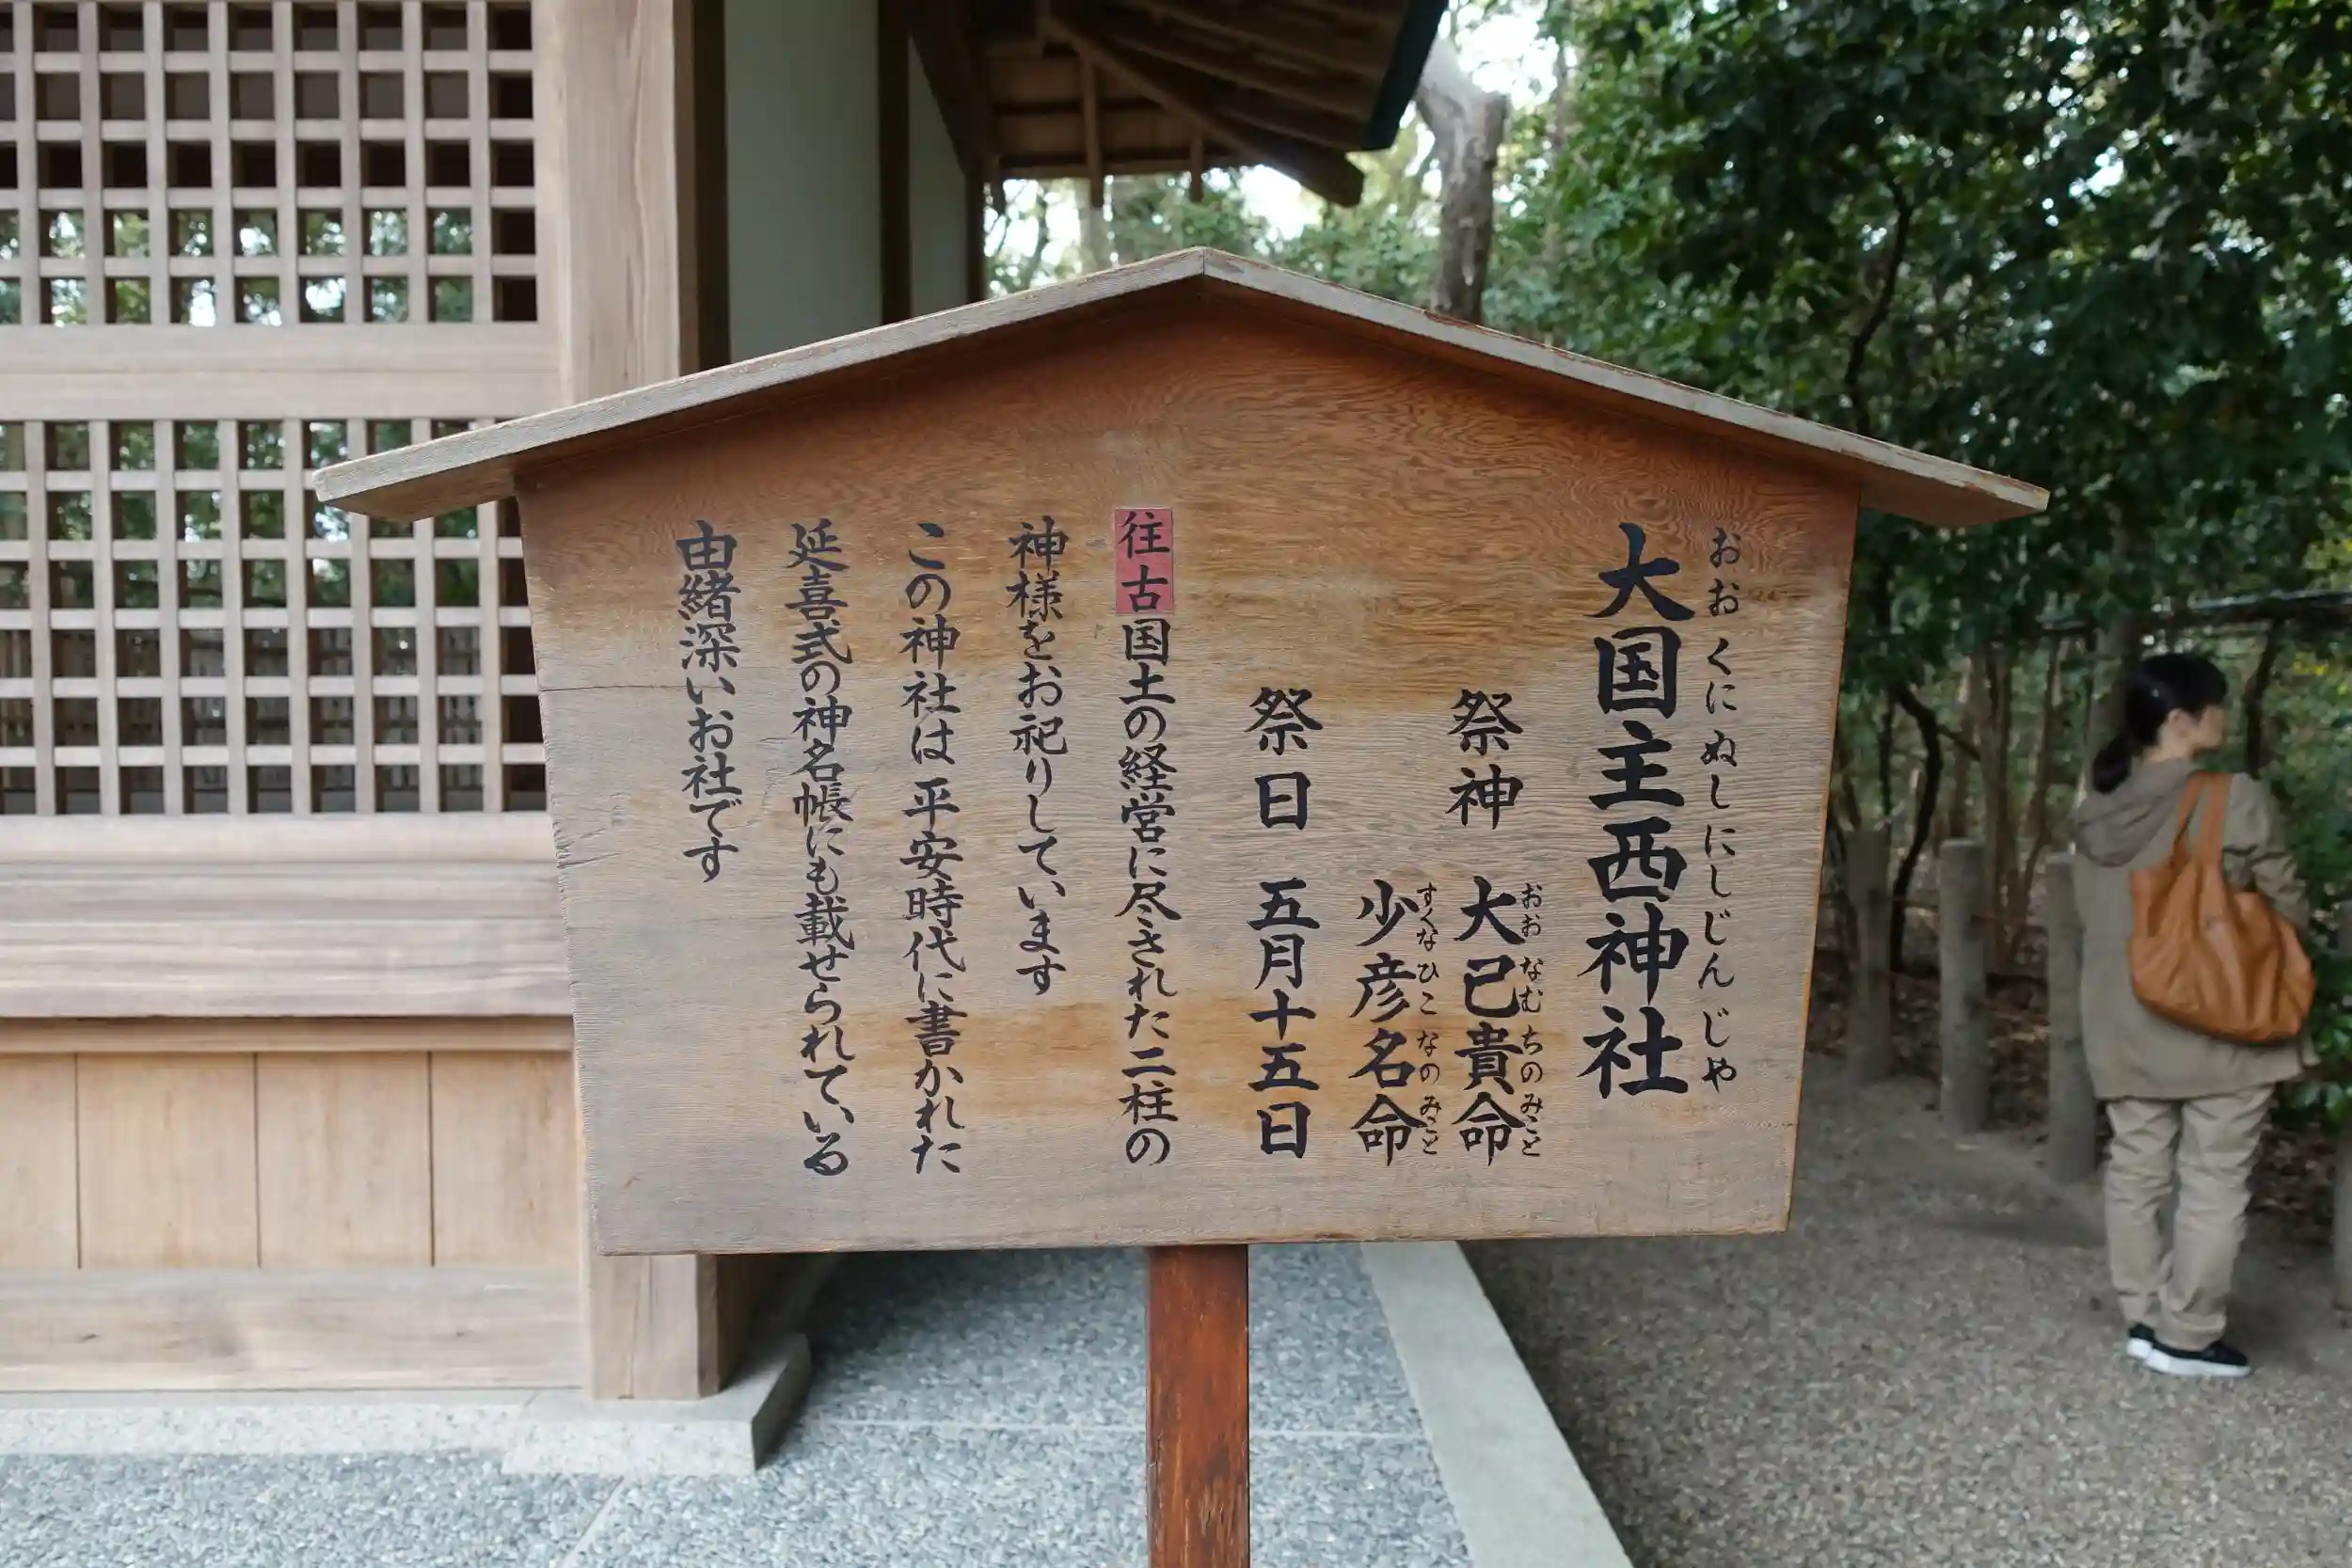 おおくにぬしにしじんじゃ
大国主西神社
おおなむちのみこと
祭神 大己貴命
すくなひこなのみこと
少彦名命
祭日 五月十五日
往古国土の経営に尽された二柱の
神様をお祀りしています
この神社は平安時代に書かれた
延喜式の神名帳にも載せられている
由緒深いお社です